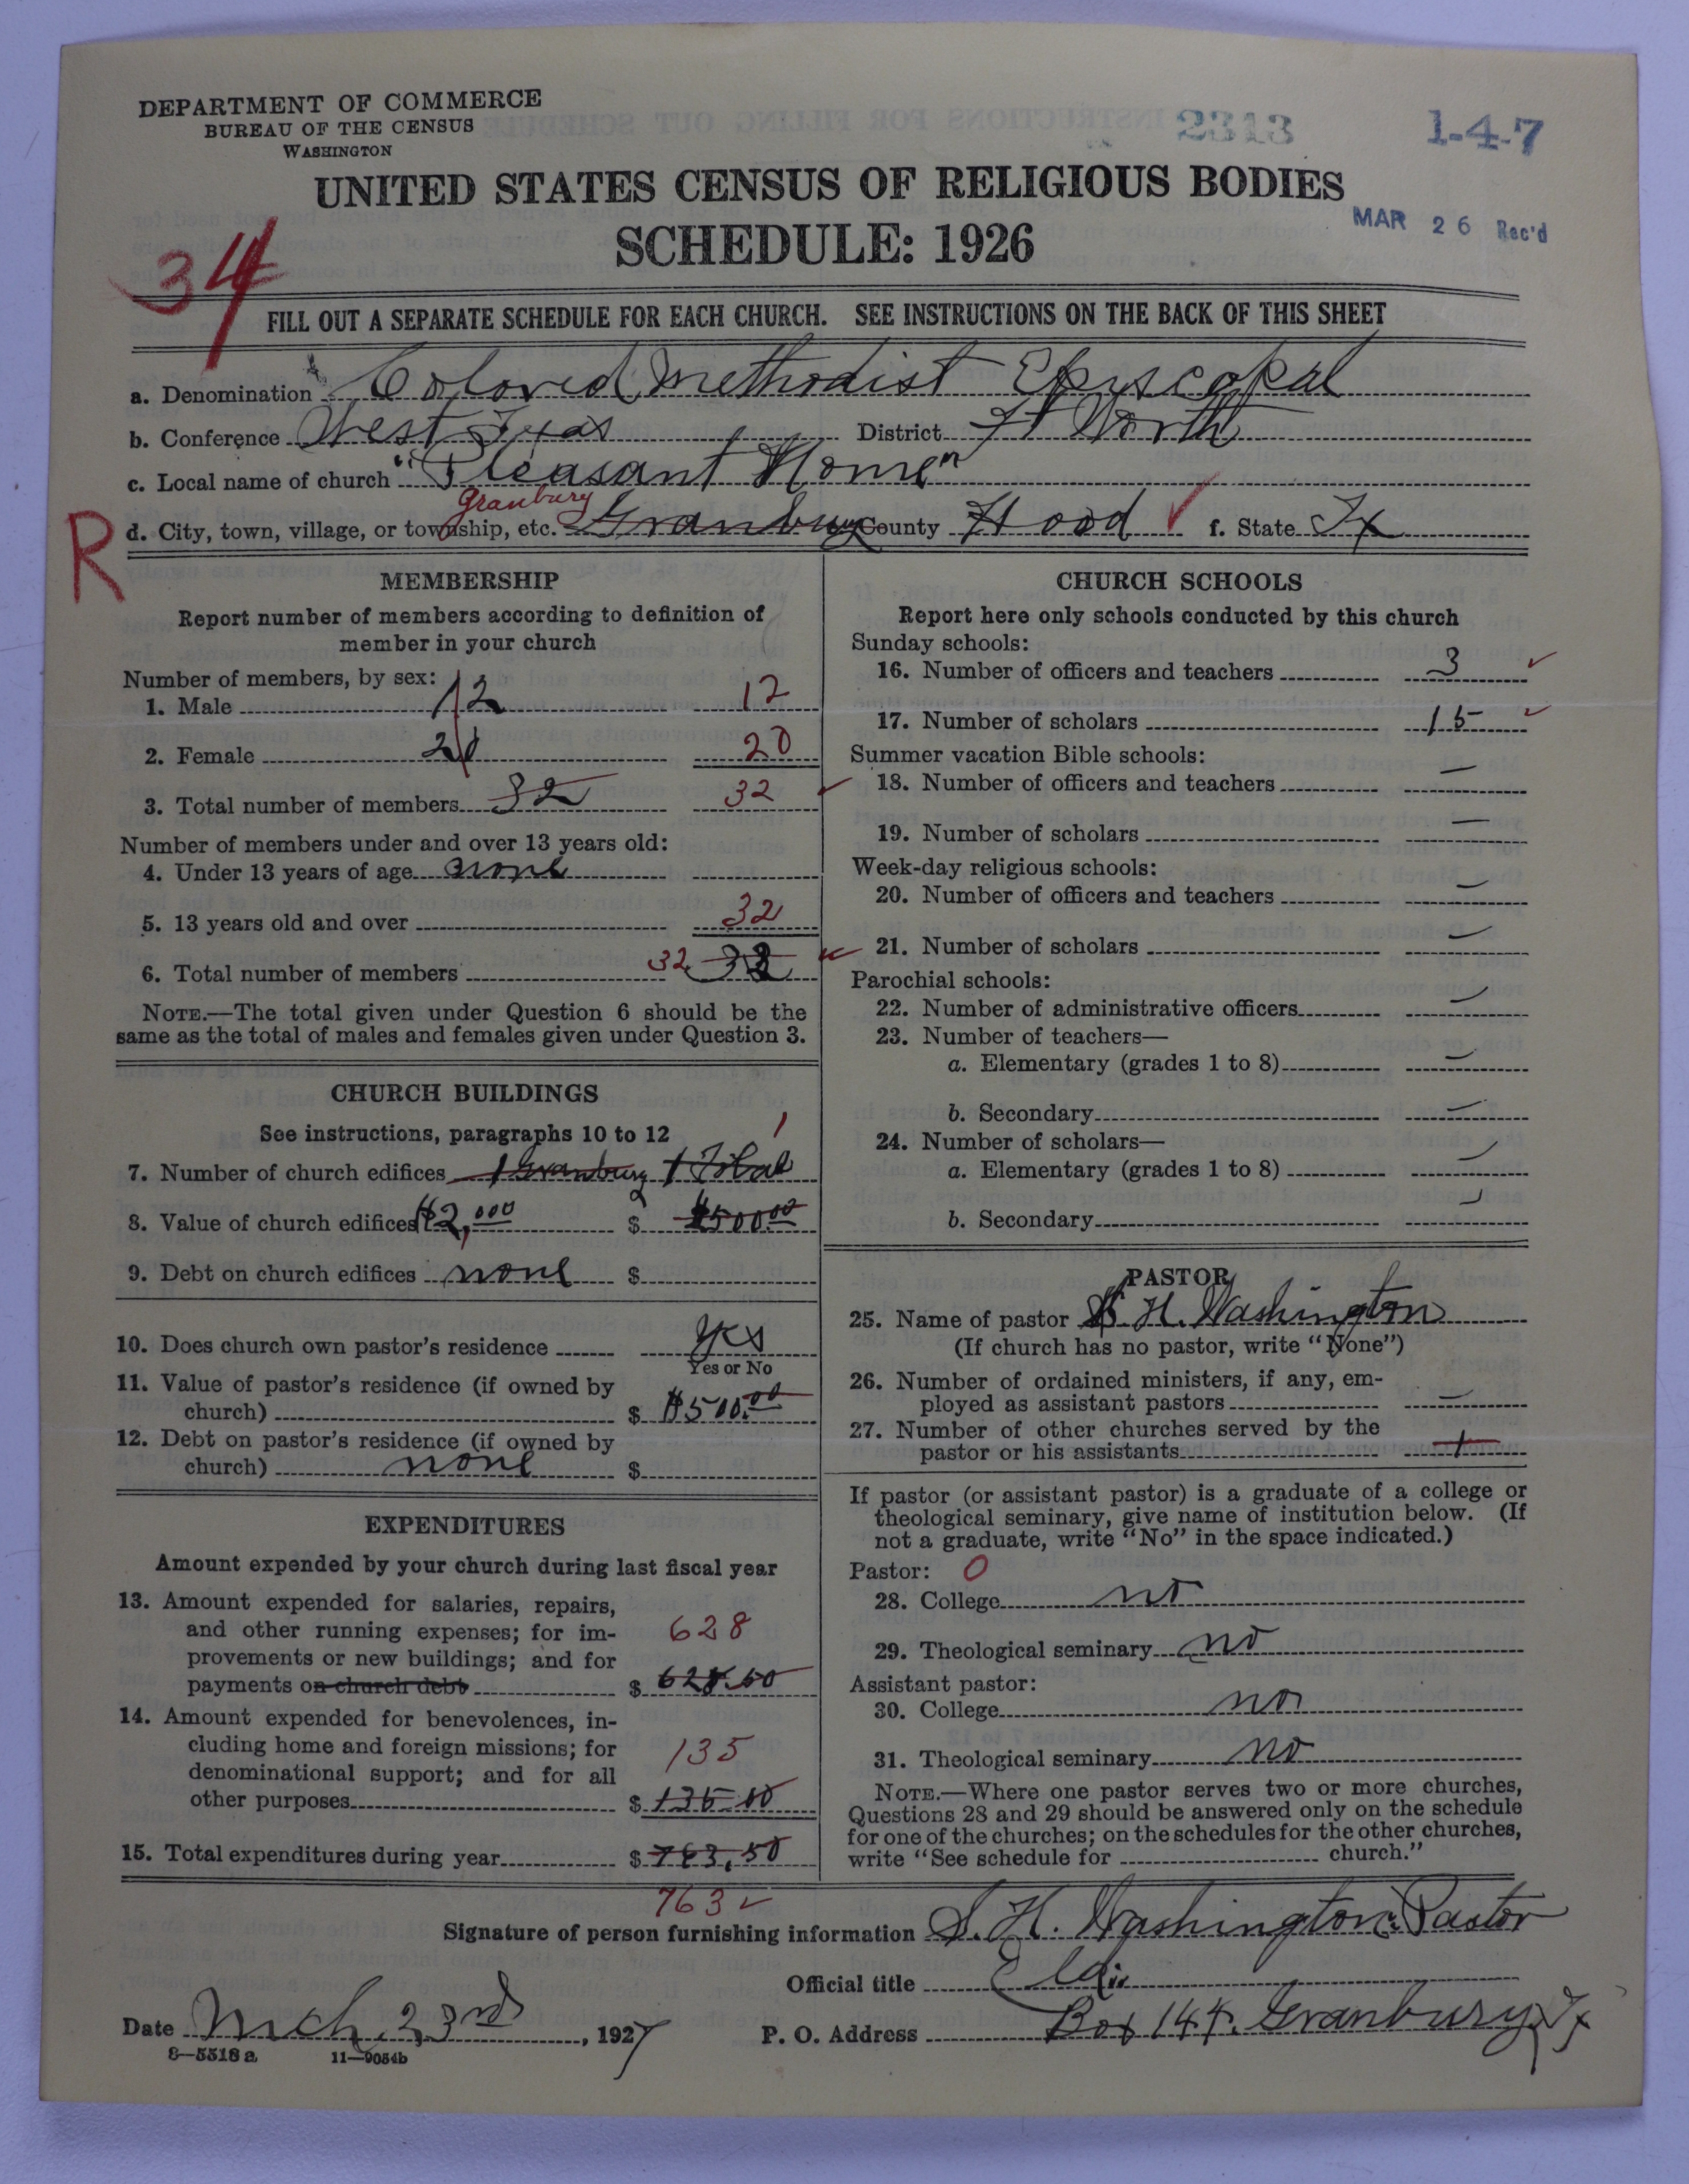 DEPARTMENT OF COMMERCE
BUREAU OF THE CENSUS
WASHINGTON
2313
1-4-7
UNITED STATES CENSUS OF RELIGIOUS BODIES
SCHEDULE: 1926
MAR 26 Rec'd
34
FILL OUT A SEPARATE SCHEDULE FOR EACH CHURCH. SEE INSTRUCTIONS ON THE BACK OF THIS SHEET
a. Denomination Colored Methodist Episcopal
b. Conference West Texas District Ft Worth
c. Local name of church "Pleasant Home"
Granbury
R
d. City, town, village, or township, etc. Granbury County Hood f. State Tx
MEMBERSHIP
Report number of members according to definition of
member in your church
Number of members, by sex:
1. Male 12 12
2. Female 20 20
3. Total number of members 32 32
Number of members under and over 13 years old:
4. Under 13 years of age none
5. 13 years old and over 32
6. Total number of members 32 32
NOTE.—The total given under Question 6 should be the
same as the total of males and females given under Question 3.
CHURCH BUILDINGS
See instructions, paragraphs 10 to 12
1
7. Number of church edifices 1 Granbury 1
8. Value of church edifices $2,000 $ $500.00
9. Debt on church edifices none $
10. Does church own pastor's residence yes
Yes or No
11. Value of pastor's residence (if owned by
church) $ $500.00
12. Debt on pastor's residence (if owned by
church) none $
EXPENDITURES
Amount expended by your church during last fiscal year
13. Amount expended for salaries, repairs,
and other running expenses; for im-
provements or new buildings; and for
payments on church debt $ 628.50
628
14. Amount expended for benevolences, in-
cluding home and foreign missions; for
denominational support; and for all
other purposes $ 135.00
135
15. Total expenditures during year $ 763.50
763
CHURCH SCHOOLS
Report here only schools conducted by this church
Sunday schools:
16. Number of officers and teachers 3
17. Number of scholars 15
Summer vacation Bible schools:
18. Number of officers and teachers —
19. Number of scholars —
Week-day religious schools:
20. Number of officers and teachers —
21. Number of scholars —
Parochial schools:
22. Number of administrative officers —
23. Number of teachers—
a. Elementary (grades 1 to 8) —
b. Secondary —
24. Number of scholars—
a. Elementary (grades 1 to 8) —
b. Secondary —
PASTOR
25. Name of pastor S. H. Washington
(If church has no pastor, write "None")
26. Number of ordained ministers, if any, em-
ployed as assistant pastors —
27. Number of other churches served by the
pastor or his assistants 1
If pastor (or assistant pastor) is a graduate of a college or
theological seminary, give name of institution below. (If
not a graduate, write "No" in the space indicated.)
Pastor: 0
28. College no
29. Theological seminary no
Assistant pastor:
30. College no
31. Theological seminary no
NOTE.—Where one pastor serves two or more churches,
Questions 28 and 29 should be answered only on the schedule
for one of the churches; on the schedules for the other churches,
write "See schedule for church."
Signature of person furnishing information S. H. Washington Pastor
Official title
Date Mch 23rd, 1927 P. O. Address Box 144. Granbury Tx
8—5518 a 11—9054b